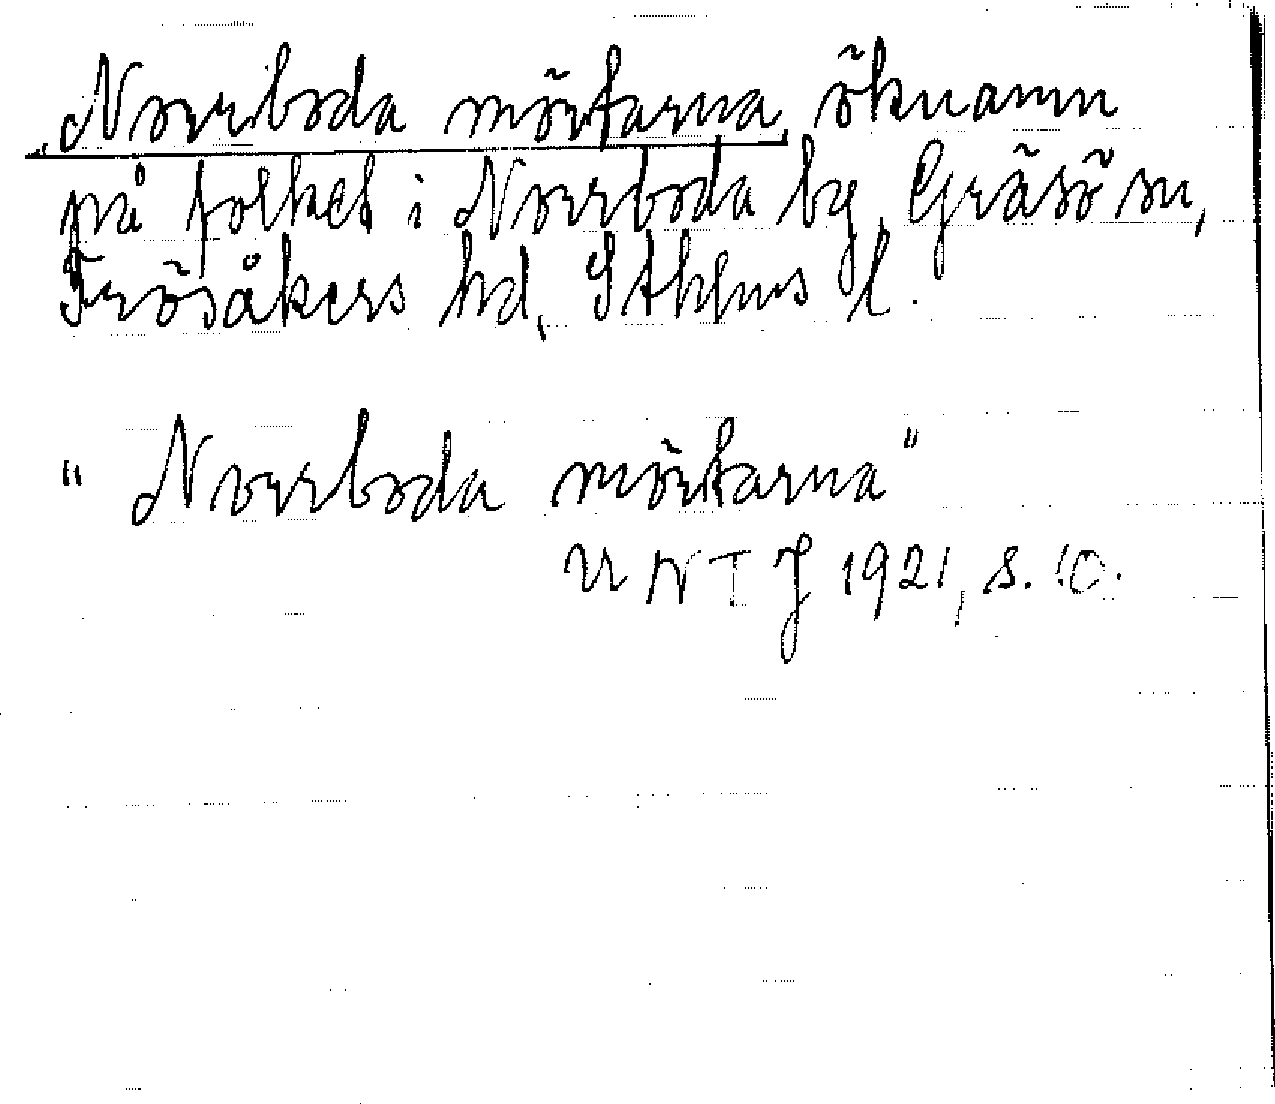 „Norrboda mörtarna, öknamn
på folket i Norrboda by, Gräsö sn,
Frösåkers hd, Sthlms l.
"Norrboda mörtarna"
UNTJ 1921, s. 10.